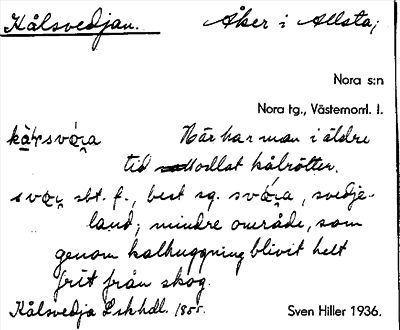 Kålsvedjan. Åker i Allsta;
Nora s:n
Nora tg., Västernorrl. l.
Här har man i äldre
tid odlat kålrötter.
sbt. f., best sg. svedje-
land; mindre område, som
genom kalhuggning blivit helt
frit från skog.
Kålsvedja Lskhdl. 1855.
Sven Hiller 1936.